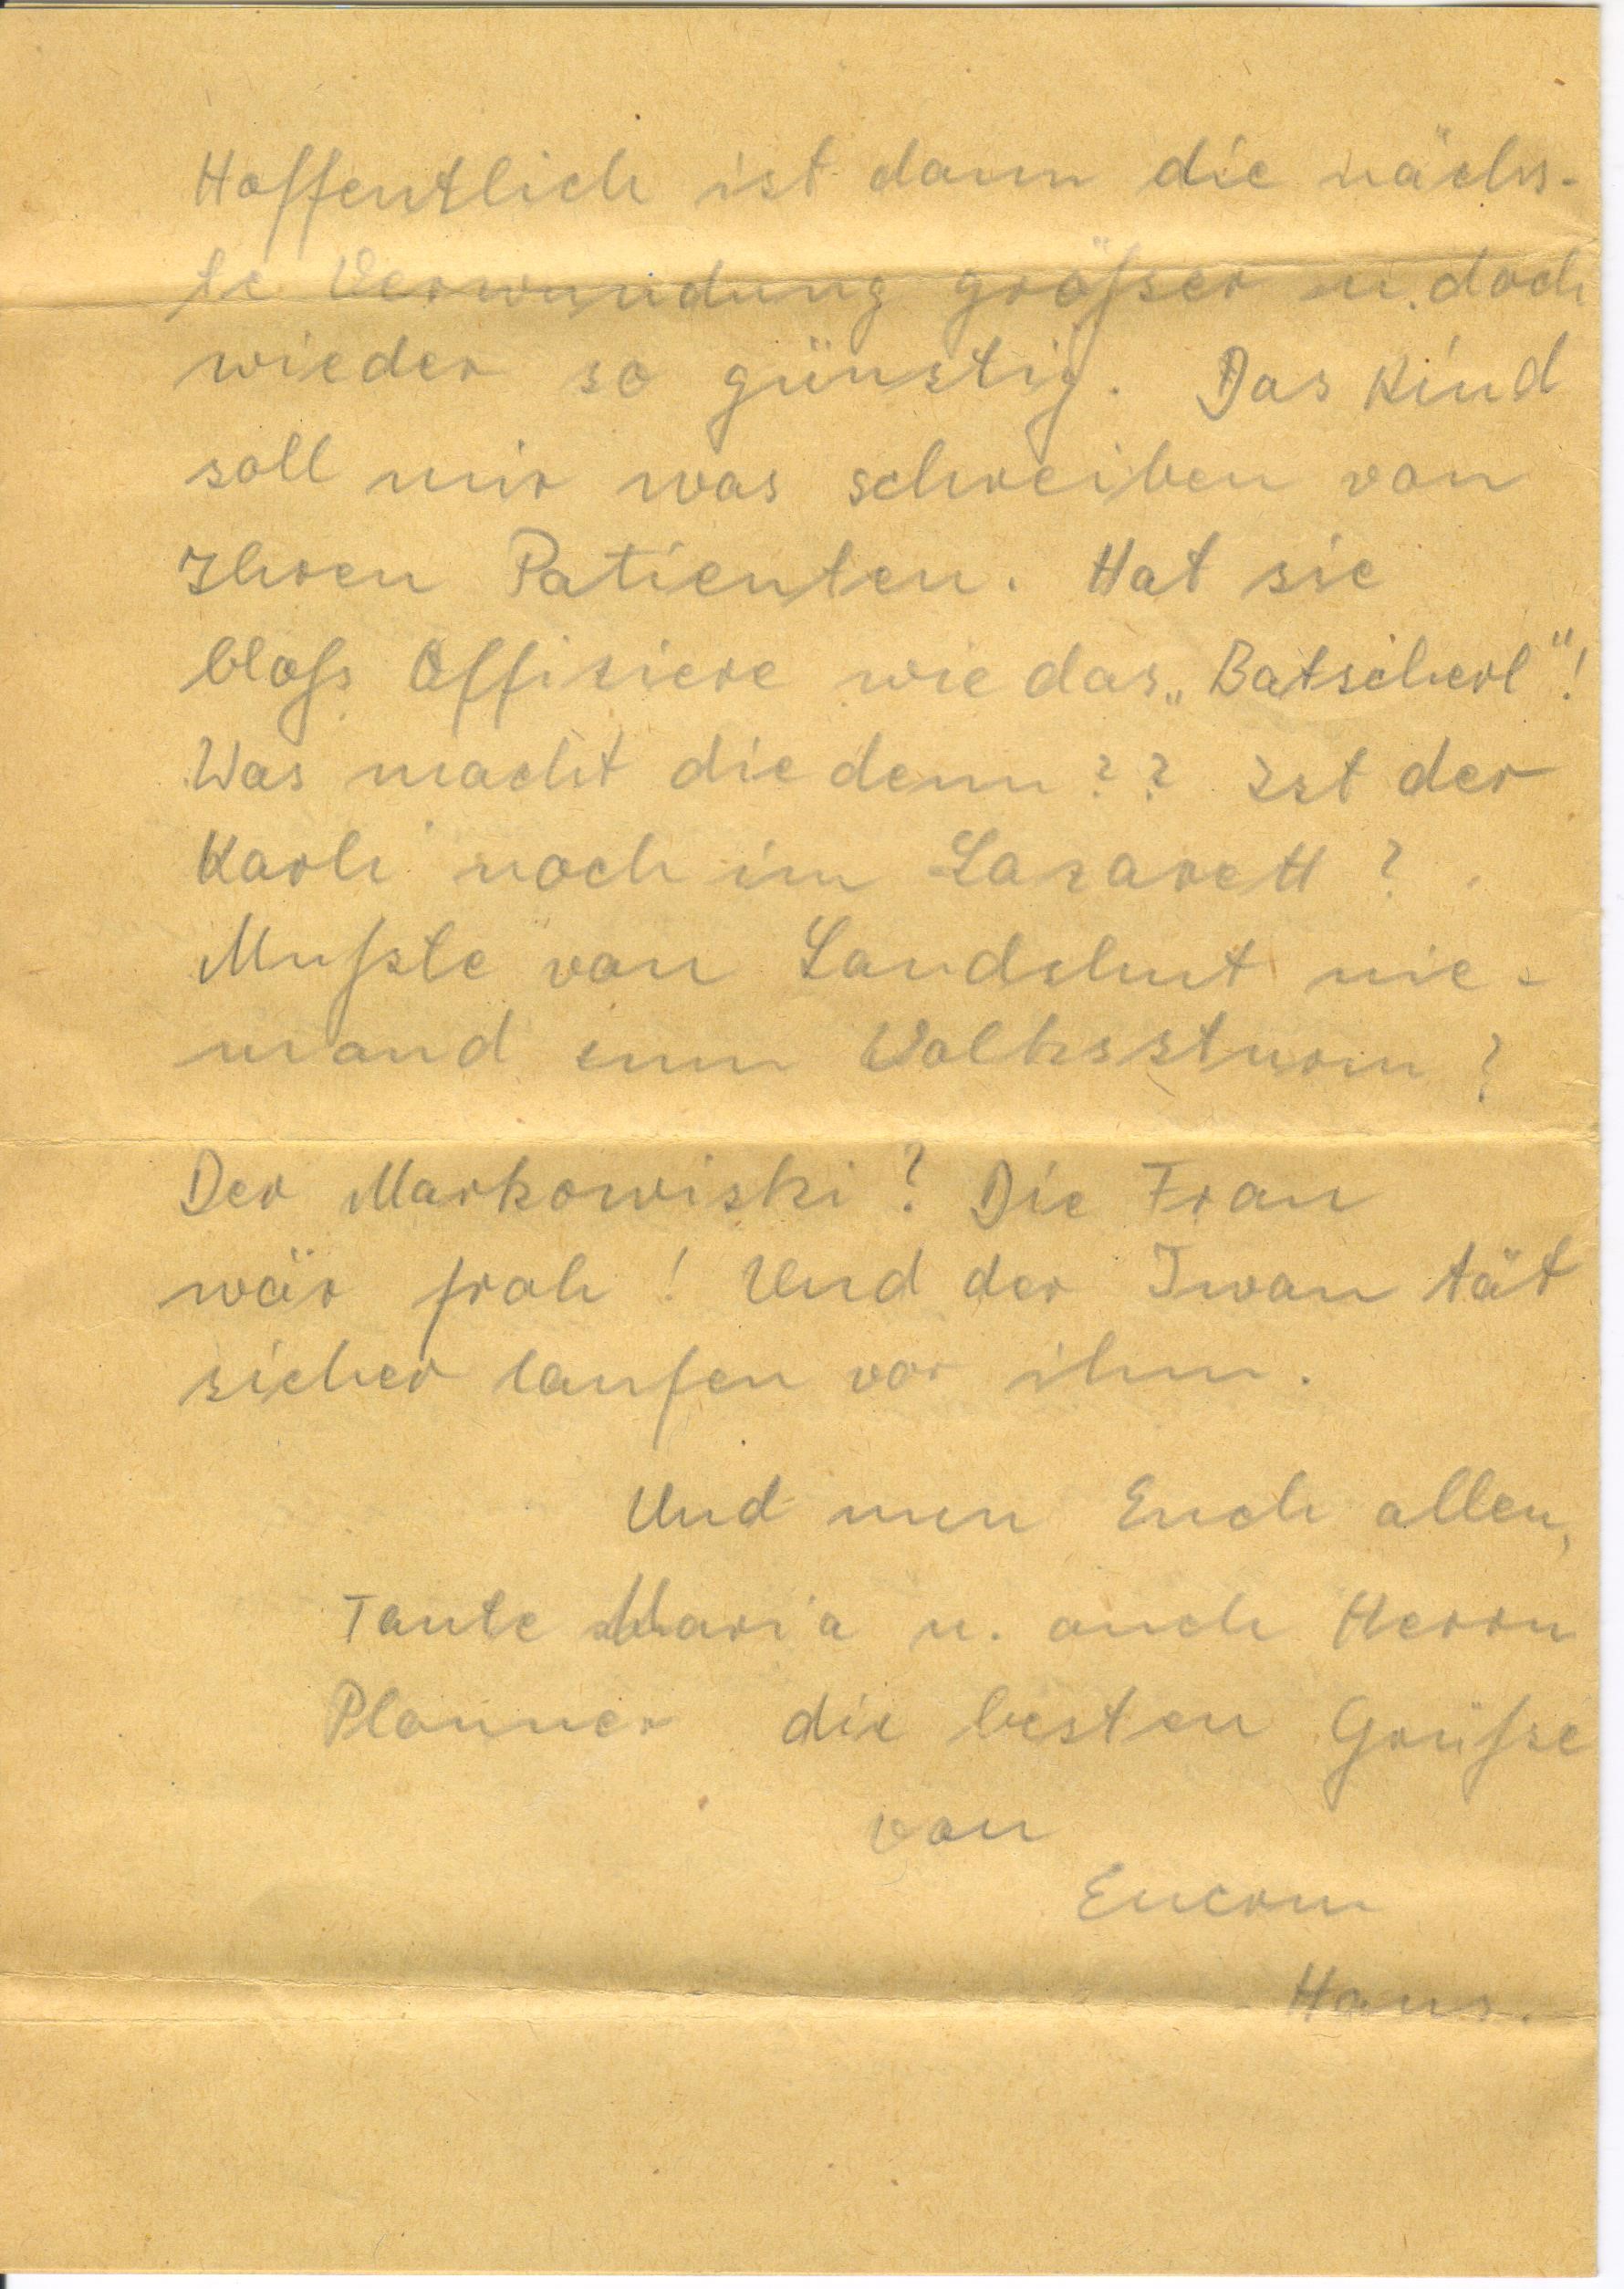 Hoffentlich ist dann die nächs-
te Verwundung größer u. doch
wieder so günstig. Das Kind
soll mir was schreiben von
Ihren Patienten. Hat sie
bloß Offiziere wie das „Batscherl"!
Was macht die denn?? Ist der
Karli noch im Lazarett?
Mußte von Landshut nie-
mand zum Volkssturm?
Der Markowiski? Die Frau
wär froh! Und der Iwan tät
sicher laufen vor ihm.
Und nun Euch allen,
Tante Maria u. auch Herrn
Planner die besten Grüße
von
Eurem
Hans.